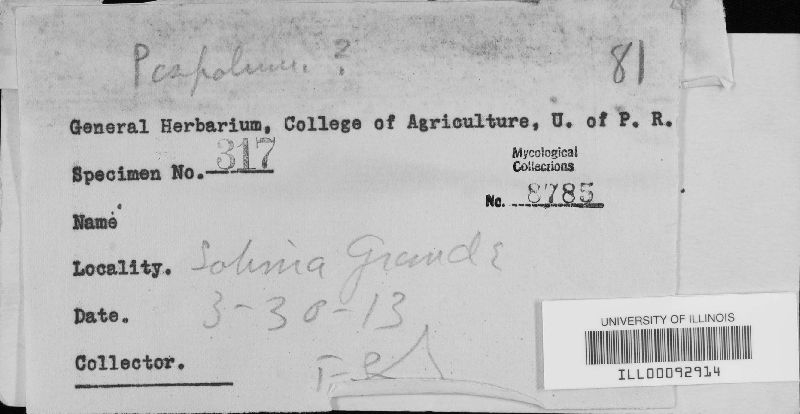 81
General Herbarium, College of Agriculture, U. of P. R.
Specimen No. 317
Mycological
Collections
No. 8785
Name
Locality. Grande
Date. 3-30-13
Collector.
UNIVERSITY OF ILLINOIS
ILL00092914